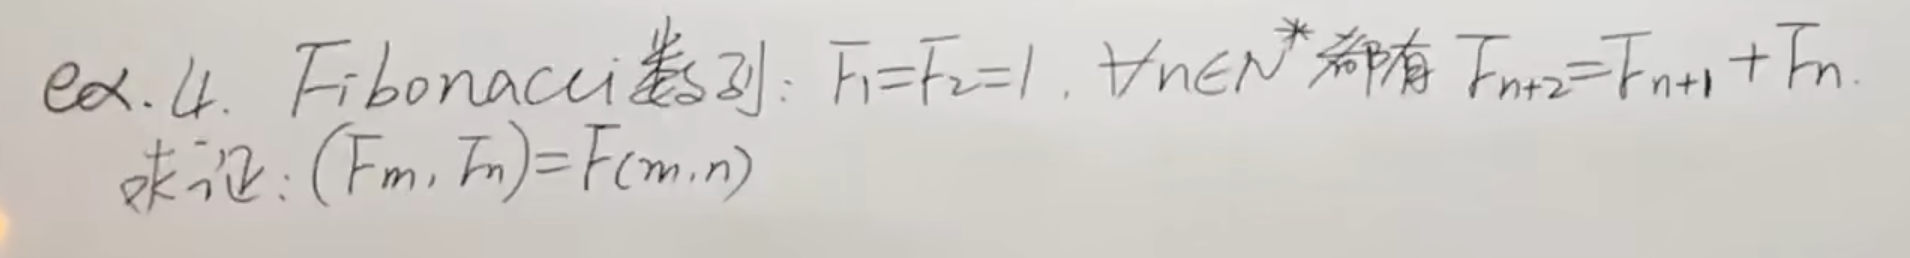 ex.4. Fibonacci数列: F₁=F₂=1. ∀n∈N* 都有 Fₙ₊₂=Fₙ₊₁+Fₙ.
求证: (Fm, Fn)=F(m,n)